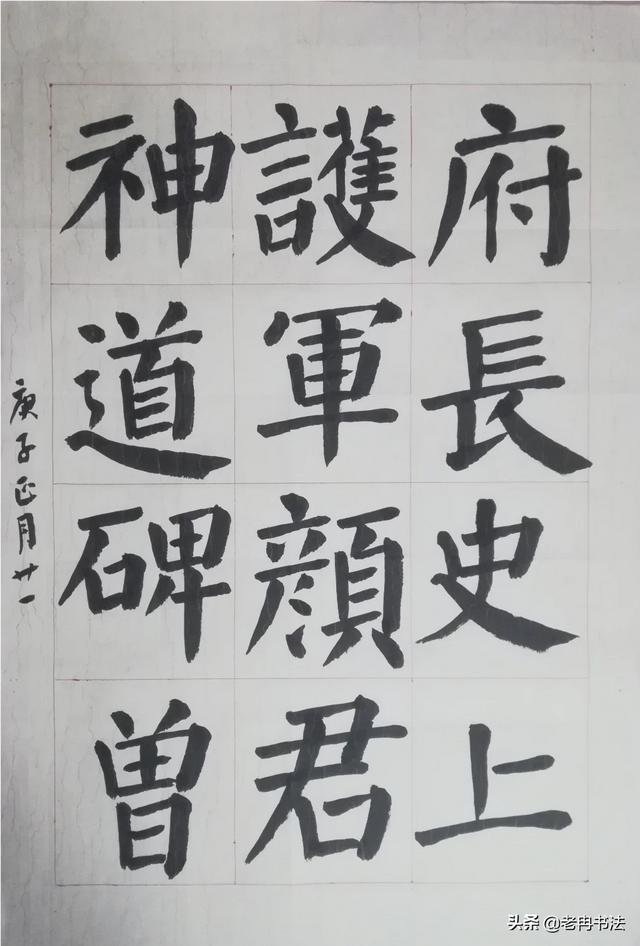 府長史上
護軍顏君
神道碑曽
庚子正月廿一
头条 @老冉书法